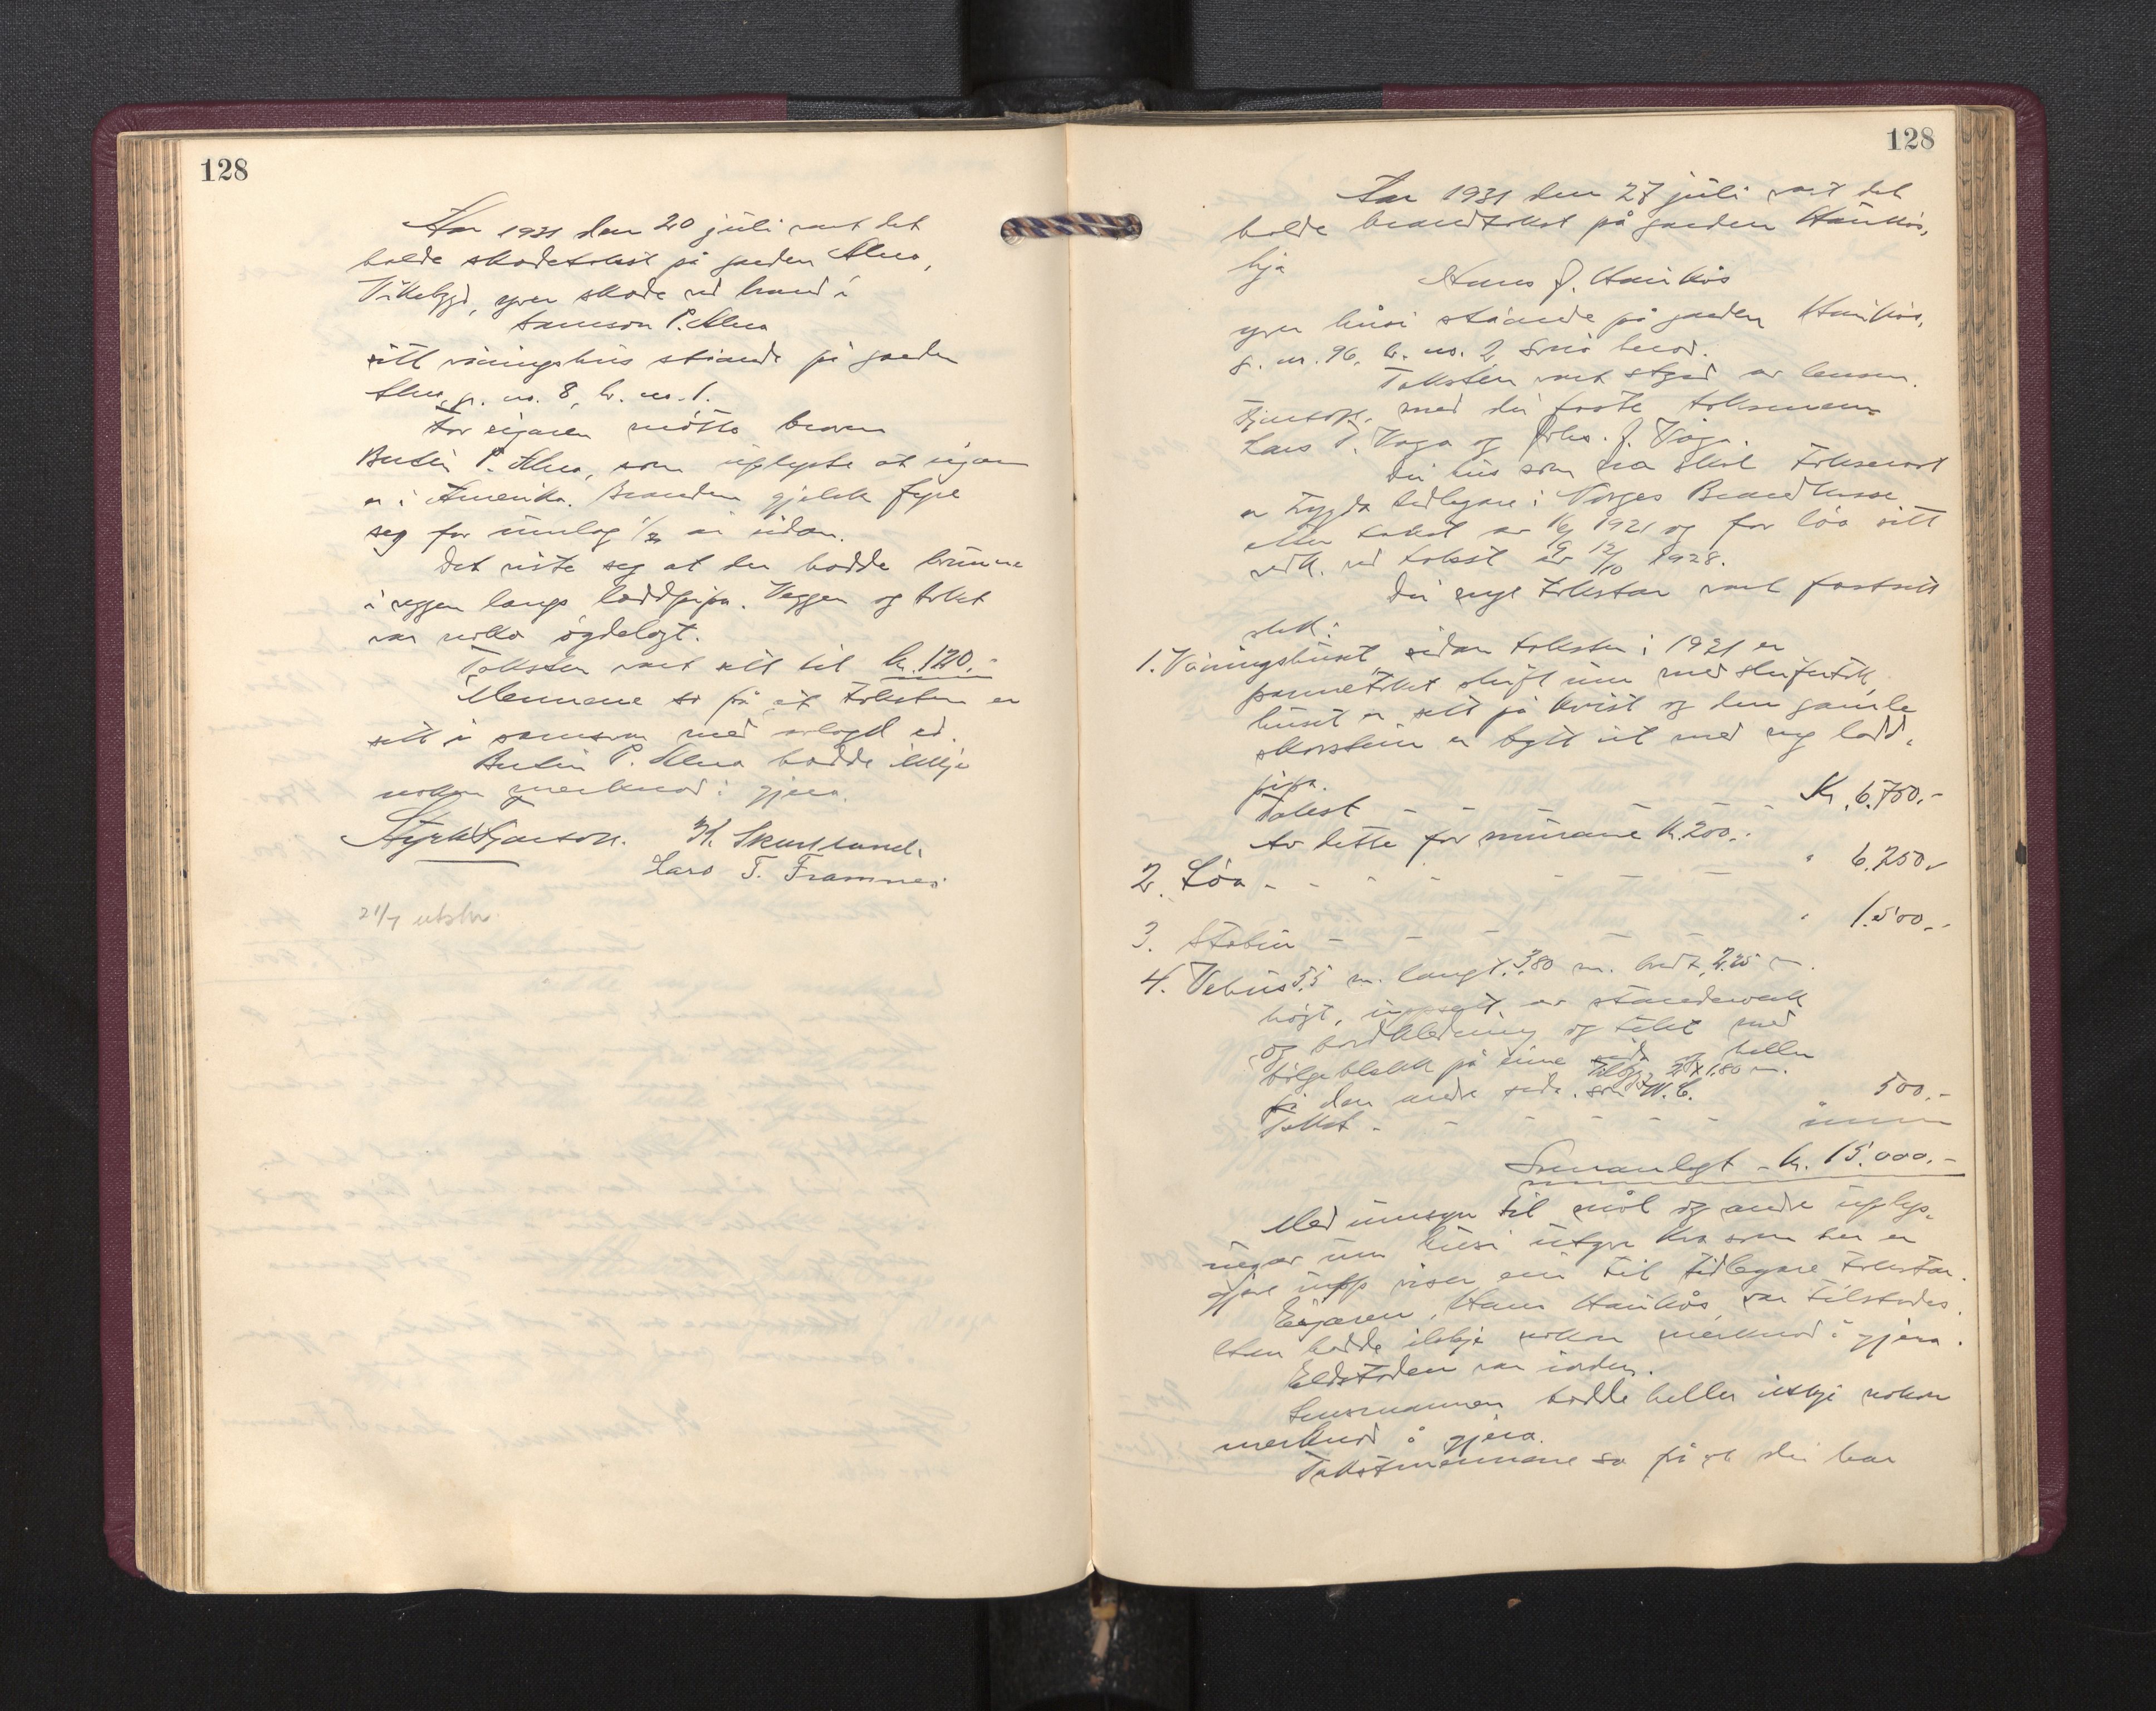 128
Aar 1931 den 20 juli vart det
halde skadetakst på garden Alna,
Vikebygd, yver skade ved brand i
Samson P. Alna
sitt våningshus ståande på garden
Alna, g. nr. 8, br. nr. 1.
For eigaren møtte broren
P. Alna, som upplyste at eigaren
er i Amerika. Branden gjekk fyre
seg for umlag 1/2 år sidan.
Det viste seg at der hadde brunne
i veggen langs loddpipa. Veggen og taket
var noko øydelagt.
Taksten vart sett til kr. 120.-
Mennene so på at taksten er
sett i samsvar med avlagd eid.
P. Alna hadde ikkje
nokon merknad å gjera.
K. Skartland.
Lars T. Framnes
21/7 utskr.
128
Aar 1931 den 27 juli vart det
halde brandtakst på garden Haukås,
hjå
Hans J. Haukås
yver husi ståande på garden Haukås,
g. nr. 96, br. nr. 2 herad.
Taksten vart styrd av lensm.
med dei faste taksmenn
Lars T. Våga og Johs. J. Våga.
Dei hus som no skal takserast
er trygda tidlegare i Norges Brandkasse
etter takst av 1/9 1921 og for løa sitt
vedk. ved takst av 12/10 1928.
Dei nye takstar vart fastsett
slik:
1. Våningshuset, sidan taksten i 1921 er
pannetaket skift um med skifertak,
huset er sett på kvist og den gamle
skorstein er bytt ut med ny lodd-
pipa.
Takst - - - - - - - Kr. 6.750.-
Av dette for murane kr. 200.-
2. Løa - - - - - - - " 6.250.-
3. Stabur - - - - - " 1.500.-
4. Vehus 5,5 m. langt, 3,80 m. bredt, 2,25 m.
høgt, uppsett av standarverk
og bordkledning og tekt med
bølgeblekk på eine sida og heller
på den andre sida. Tilbygg 2 x 1,80 m. som W. C.
Takst - - - - - - 500.-
Samanlagt - kr. 15.000.-
Med umsyn til mål og andre upplys-
ningar um husi utyver kva som her er
gjeve upp viser ein til tidlegare takstar.
Eigaren, Hans Haukås var tilstades.
Han hadde ikkje nokon merknad å gjera.
Eldstaden var i orden.
Lensmannen hadde heller ikkje nokon
merknad å gjera.
Takstmennene so på at dei har